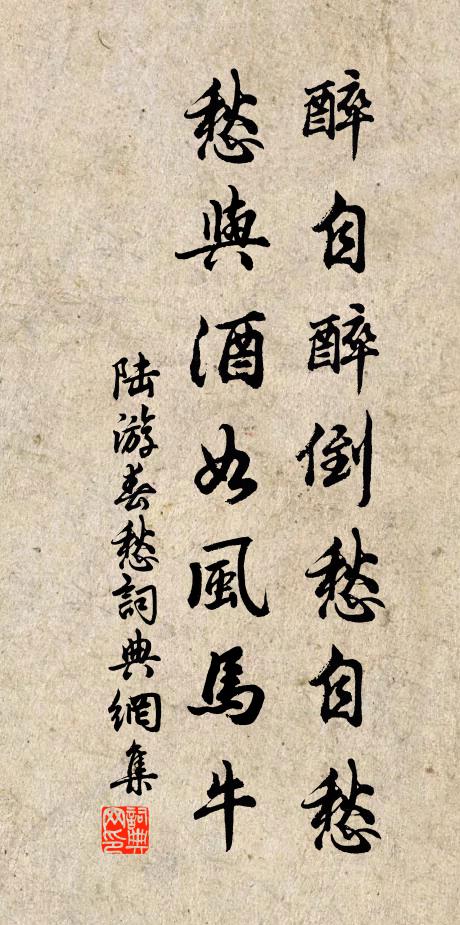 醉自醉倒愁自愁
愁與酒如風馬牛
陸游春愁詞典網集
詞典
网印